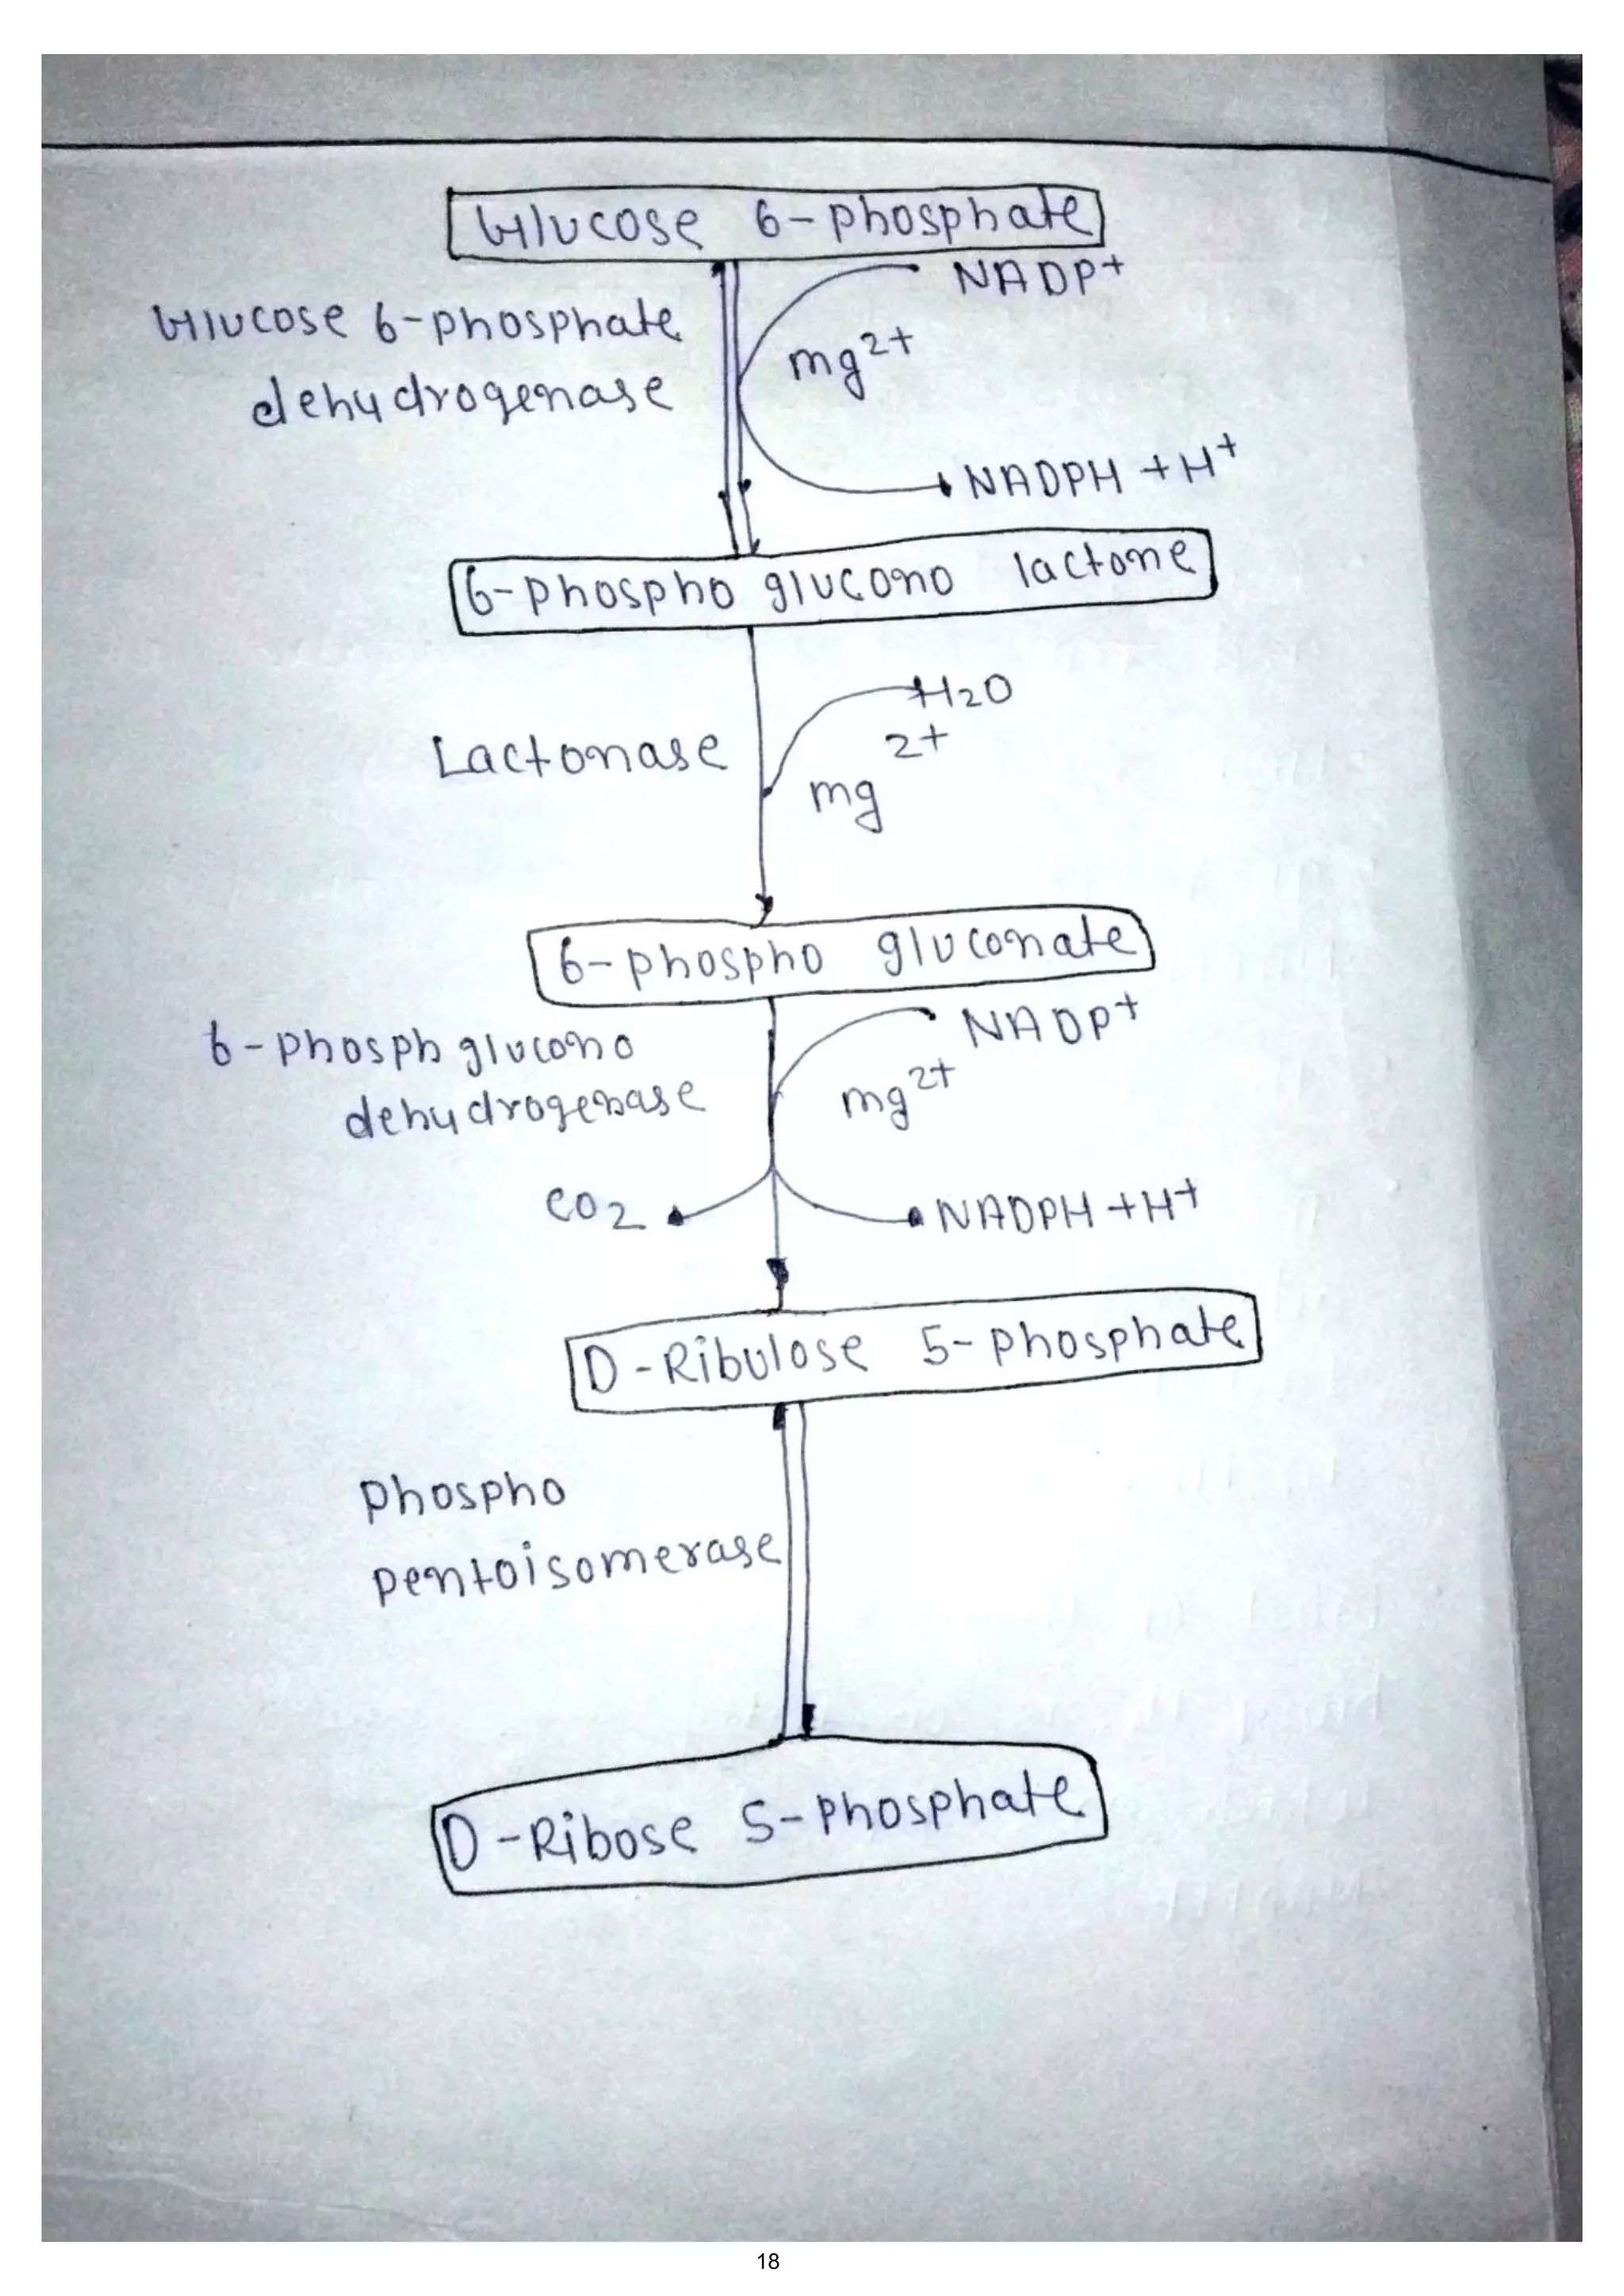 Glucose 6-phosphate
NADP+
Glucose 6-phosphate
mg2+
dehydrogenase
NADPH + H+
6-phospho glucono lactone
H2O
Lactonase
mg 2+
6-phospho gluconate
NADP+
6-phosph glucono
mg2+
dehydrogenase
CO2
NADPH + H+
D-Ribulose 5-phosphate
phospho
pentoisomerase
D-Ribose 5-phosphate
18